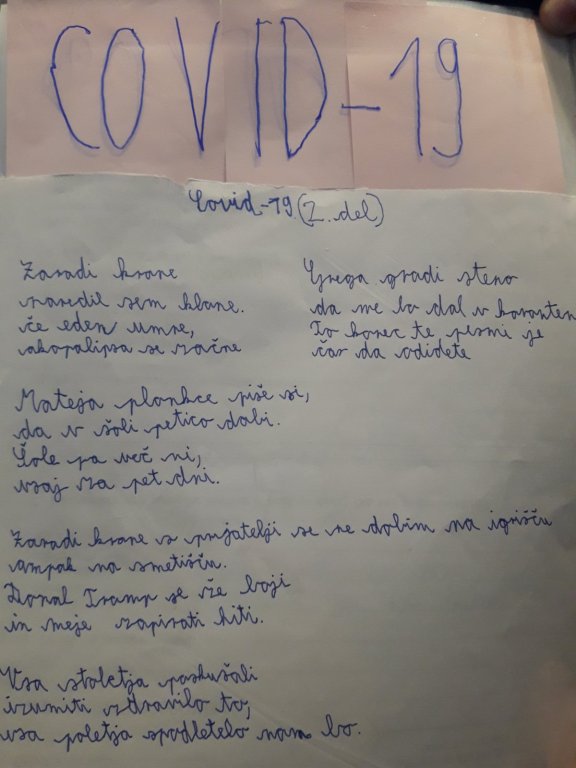 COVID-19
Covid-19 (2. del)
Zaradi krone
naredil sem klone.
če eden umre,
akopalipsa se začne
Mateja plonkce piše si,
da v šoli petico dobi.
Šole pa več ni,
vsaj za pet dni.
Zaradi krone s prijatelji se ne dobim na igrišču
ampak na smetišču.
Donal Tramp se že boji
in meje zapirati hiti.
Vsa stoletja poskušali
izumiti zdravilo to,
vsa poletja spodletelo nam bo.
Grega gradi steno
da me bo dal v karanten
To konec te pesmi je
čas da odidete